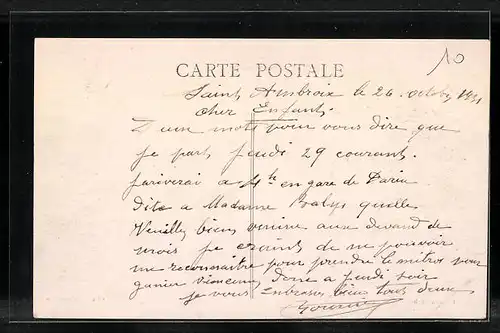 10
CARTE POSTALE
Saint Ambroix le 26 octobre
Cher Enfants.
Deux mots pour vous dire que
Je part Jeudi 29 courant.
J'ariverai a 4h en gare de Paris
Dite a Madame quelle
Veuille bien venire aux devand de
mois je craint de ne pouvoir
me reconnaitre pour prendre le mitros pour
donc a jeudi soir
je vous Embrasse bien tous deux